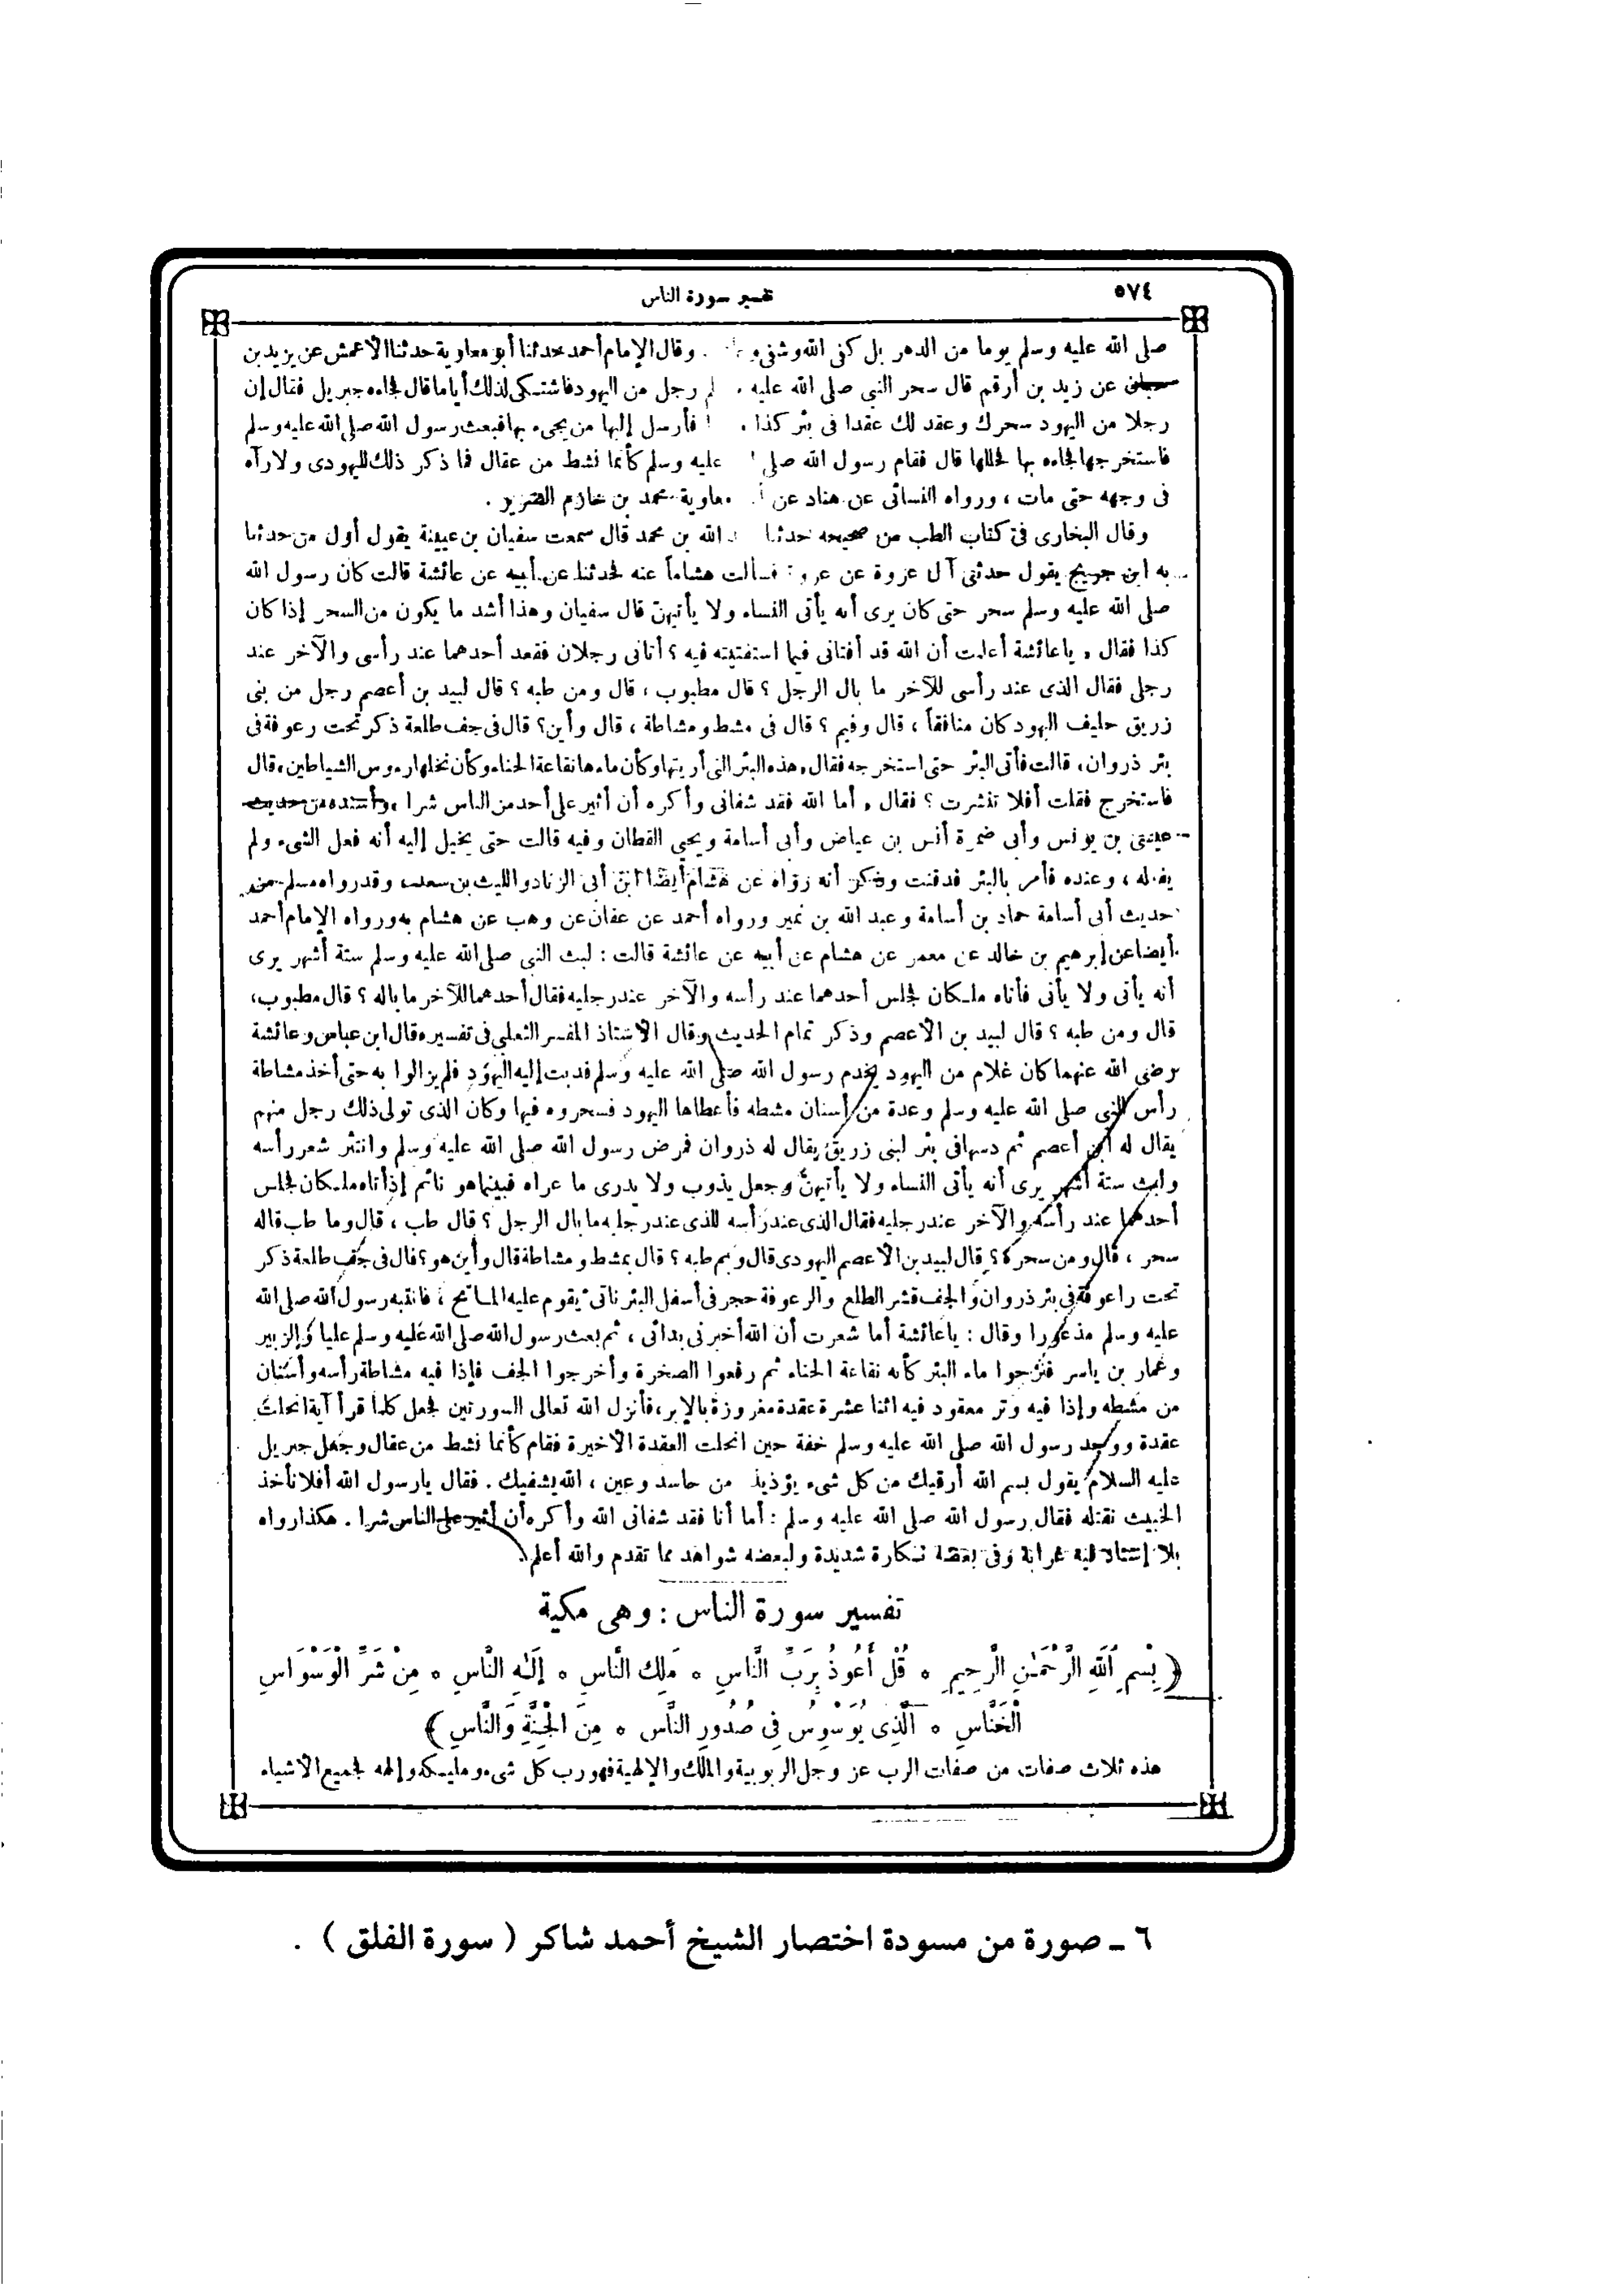 ٥٧٤
تفسير سورة الناس
صلى الله عليه وسلم يوما من الدهر بل كفى الله وشفى . وقال الإمام أحمد حدثنا أبو معاوية حدثنا الأعمش عن يزيد بن
حبان عن زيد بن أرقم قال سحر النبي صلى الله عليه رجل من اليهود فاشتكى لذلك أياما قال فجاءه جبريل فقال إن
رجلا من اليهود سحرك وعقد لك عقدا فى بئر كذا فأرسل إليها من يجىء بها فبعث رسول الله صلى الله عليه وسلم
فاستخرجها فجاءه بها فحللها قال فقام رسول الله صلى عليه وسلم كأنما نشط من عقال فما ذكر ذلك لليهودى ولا رآه
فى وجهه حتى مات ، ورواه النسائى عن هناد عن معاوية محمد بن خازم الضرير .
وقال البخارى فى كتاب الطب من صحيحه حدثنا الله بن محمد قال سمعت سفيان بن عيينة يقول أول من حدثنا
به ابن جريج يقول حدثنى آل عروة عن عروة فسألت هشاماً عنه فحدثنا عن أبيه عن عائشة قالت كان رسول الله
صلى الله عليه وسلم سحر حتى كان يرى أنه يأتى النساء ولا يأتيهن قال سفيان وهذا أشد ما يكون من السحر إذا كان
كذا فقال « ياعائشة أعلمت أن الله قد أفتانى فيما استفتيته فيه ؟ أتانى رجلان فقعد أحدهما عند رأسى والآخر عند
رجلى فقال الذى عند رأسى للآخر ما بال الرجل ؟ قال مطبوب ، قال ومن طبه ؟ قال لبيد بن أعصم رجل من بنى
زريق حليف اليهود كان منافقاً ، قال وفيم ؟ قال فى مشط ومشاطة ، قال وأين؟ قال فى جف طلعة ذكر تحت رعوفة فى
بئر ذروان، قالت فأتى البئر حتى استخرجه فقال « هذه البئر التى أريتها وكأن ماءها نقاعة الحناء وكأن نخلها رءوس الشياطين » قال
فاستخرج فقلت أفلا تنشرت ؟ فقال « أما الله فقد شفانى وأكره أن أثير على أحد من الناس شرا » وأسنده من حديث
عيسى بن يونس وأبى ضمرة أنس بن عياض وأبى أسامة ويحيى القطان وفيه قالت حتى يخيل إليه أنه فعل الشىء ولم
يفعله ، وعنده فأمر بالبئر فدفنت وذكر أنه رواه عن هشام أيضا ابن أبى الزناد والليث بن سعد ، وقد رواه مسلم من
حديث أبى أسامة حماد بن أسامة وعبد الله بن نمير ورواه أحمد عن عفان عن وهب عن هشام به ورواه الإمام أحمد
أيضا عن إبرهيم بن خالد عن معمر عن هشام عن أبيه عن عائشة قالت : لبث النبى صلى الله عليه وسلم ستة أشهر يرى
أنه يأتى ولا يأتى فأتاه ملكان فجلس أحدهما عند رأسه والآخر عند رجليه فقال أحدهما للآخر ما باله ؟ قال مطبوب،
قال ومن طبه ؟ قال لبيد بن الأعصم وذكر تمام الحديث وقال الأستاذ المفسر الثعلبى فى تفسيره قال ابن عباس وعائشة
رضى الله عنهما كان غلام من اليهود يخدم رسول الله صلى الله عليه وسلم فدبت إليه اليهود فلم يزالوا به حتى أخذ مشاطة
رأس النبى صلى الله عليه وسلم وعدة من أسنان مشطه فأعطاها اليهود فسحروه فيها وكان الذى تولى ذلك رجل منهم
يقال له ابن أعصم ثم دسها فى بئر لبنى زريق يقال له ذروان فمرض رسول الله صلى الله عليه وسلم وانتثر شعر رأسه
ولبث ستة أشهر يرى أنه يأتى النساء ولا يأتيهن وجعل يذوب ولا يدرى ما عراه فبينما هو نائم إذ أتاه ملكان فجلس
أحدهما عند رأسه والآخر عند رجليه فقال الذى عند رأسه للذى عند رجليه ما بال الرجل ؟ قال طب ، قال وما طب قال
سحر ، قال ومن سحره ؟ قال لبيد بن الأعصم اليهودى قال وبم طبه ؟ قال بمشط ومشاطة قال وأين هو؟ قال فى جف طلعة ذكر
تحت راعوفة فى بئر ذروان والجف قشر الطلع والرعوفة حجر فى أسفل البئر ناتىء يقوم عليه الماتح ، فانتبه رسول الله صلى الله
عليه وسلم مذعورا وقال : ياعائشة أما شعرت أن الله أخبرنى بدائى ، ثم بعث رسول الله صلى الله عليه وسلم عليا والزبير
وعمار بن ياسر فنزحوا ماء البئر كأنه نقاعة الحناء ثم رفعوا الصخرة وأخرجوا الجف فإذا فيه مشاطة رأسه وأسنان
من مشطه وإذا فيه وتر معقود فيه اثنا عشرة عقدة مغروزة بالإبر، فأنزل الله تعالى السورتين فجعل كلما قرأ آية انحلت
عقدة ووجد رسول الله صلى الله عليه وسلم خفة حين انحلت العقدة الأخيرة فقام كأنما نشط من عقال وجعل جبريل
عليه السلام يقول بسم الله أرقيك من كل شىء يؤذيك من حاسد وعين ، الله يشفيك . فقال يارسول الله أفلا نأخذ
الخبيث نقتله فقال رسول الله صلى الله عليه وسلم : أما أنا فقد شفانى الله وأكره أن أثير على الناس شرا . هكذا رواه
بلا إسناد فيه غرابة وفى بعضه نكارة شديدة ولبعضه شواهد مما تقدم والله أعلم
تفسير سورة الناس : وهى مكية
﴿ بِسْمِ اللَّهِ الرَّحْمَٰنِ الرَّحِيمِ ۝ قُلْ أَعُوذُ بِرَبِّ النَّاسِ ۝ مَلِكِ النَّاسِ ۝ إِلَٰهِ النَّاسِ ۝ مِنْ شَرِّ الْوَسْوَاسِ
الْخَنَّاسِ ۝ الَّذِى يُوَسْوِسُ فِى صُدُورِ النَّاسِ ۝ مِنَ الْجِنَّةِ وَالنَّاسِ ﴾
هذه ثلاث صفات من صفات الرب عز وجل الربوبية والملك والإلهية فهو رب كل شىء ومليكه وإلهه فجميع الأشياء
٦ ـ صورة من مسودة اختصار الشيخ أحمد شاكر ( سورة الفلق ) .